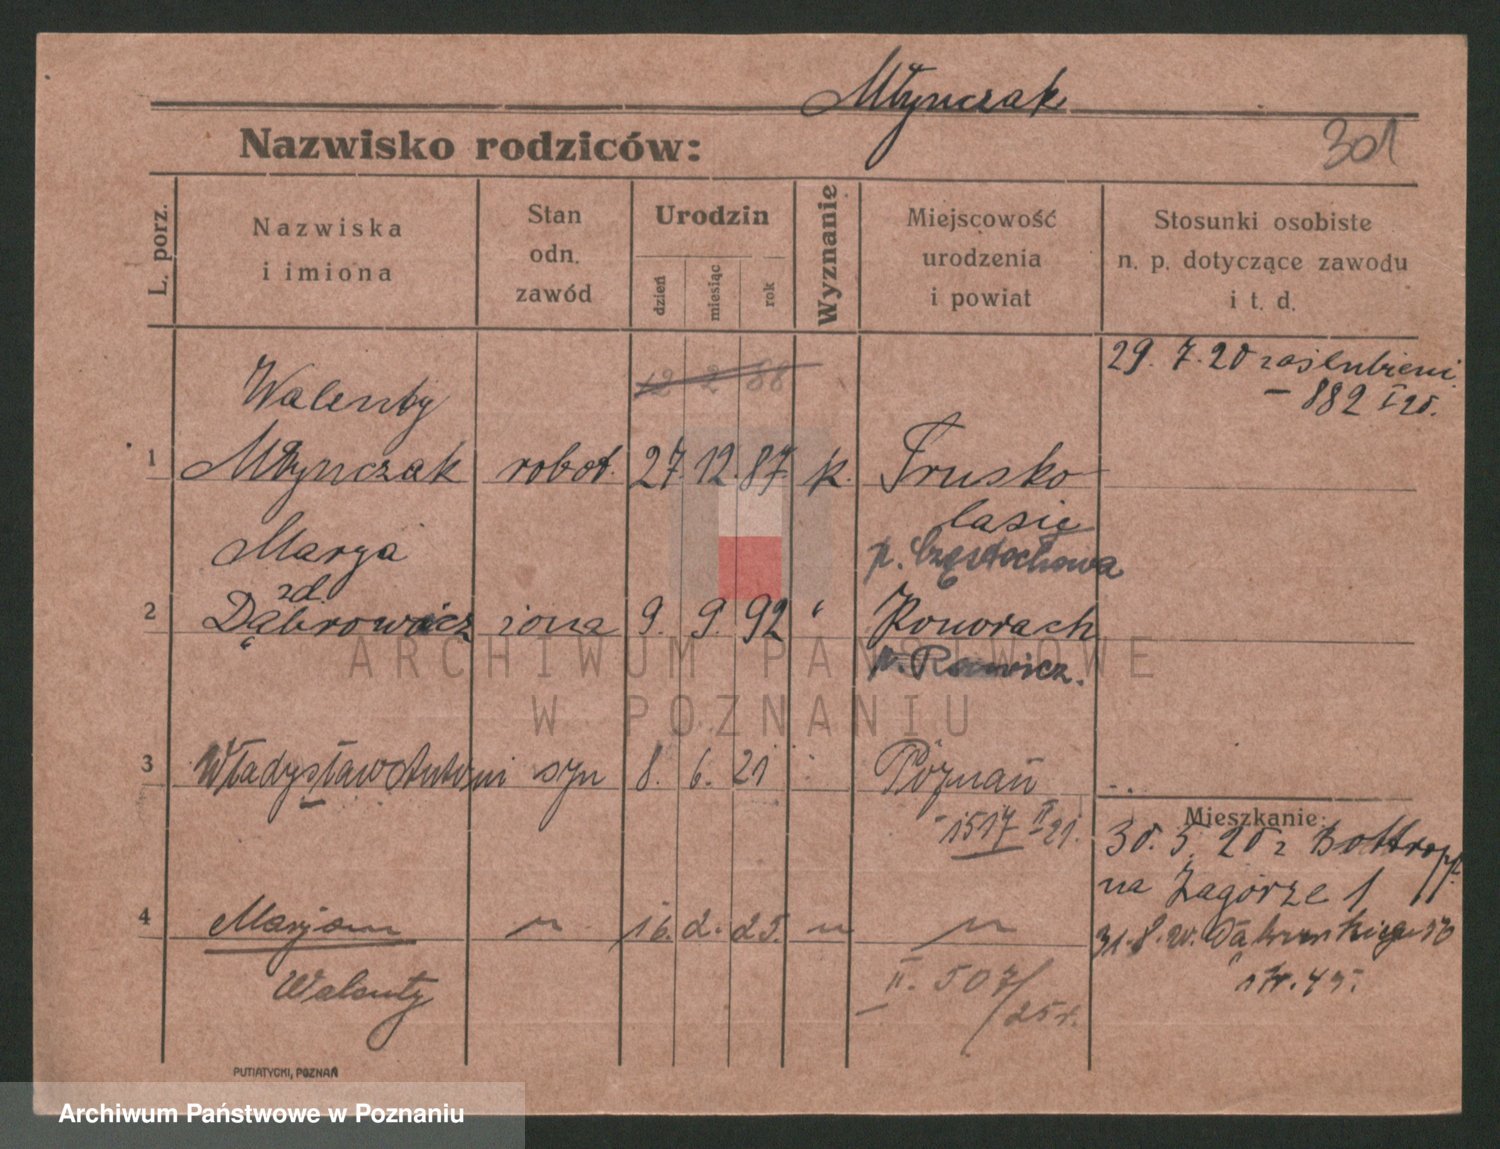 Młynczak
Nazwisko rodziców:
301
L. porz.
Nazwiska
i imiona
Stan
odn.
zawód
Urodzin
dzień
miesiąc
rok
Wyznanie
Miejscowość
urodzenia
i powiat
Stosunki osobiste
n. p. dotyczące zawodu
i t. d.
29. 7. 20 zaślubieni
– 882 I 20.
Walenty
12 2 88
1 Młynczak robot. 27. 12. 87 k. Trusko
lasie
p. Częstochowa
Marya
zd.
2 Dąbrowicz żona 9. 9. 92 " Konorach
p. Rawicz.
3 Władysław Antoni syn 8. 6. 21 Poznań
1517 II 21.
4 Marjan " 16. 2. 25. " "
Walenty
II. 507/
25 r.
Mieszkanie:
30. 5. 20 z Bottrop
na Zagórze 1
31. 8. 20.
PUTIATYCKI, POZNAŃ
ARCHIWUM PAŃSTWOWE
W POZNANIU
Archiwum Państwowe w Poznaniu